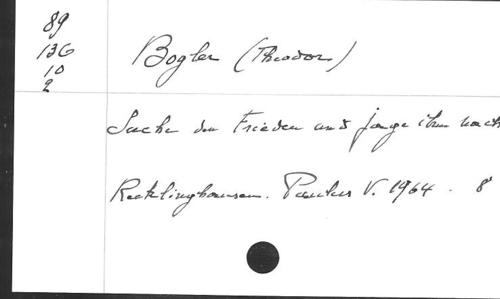 89
136
10
2
Bogler (Theodor)
Suche den Frieden und jage ihm nach
Recklinghausen. Paulus V. 1964. 8°